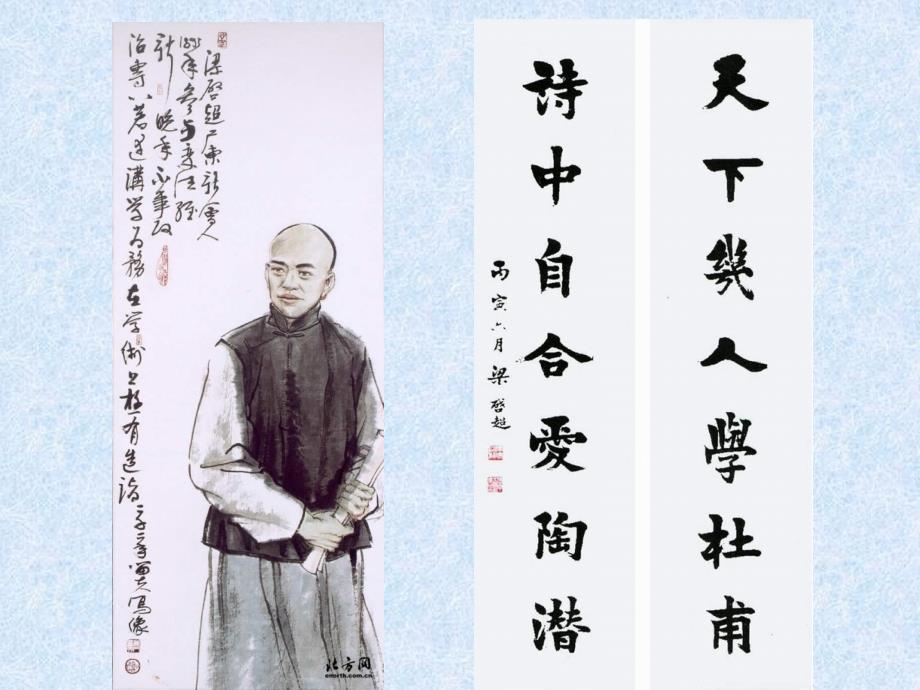 梁啓超广东新會人
1895年参与变法维
新 晚年不事政
治專以著述講学为務在学術上极有造诣
北方网
enorth.com.cn
天下幾人學杜甫
詩中自合愛陶潛
丙寅六月梁啓超